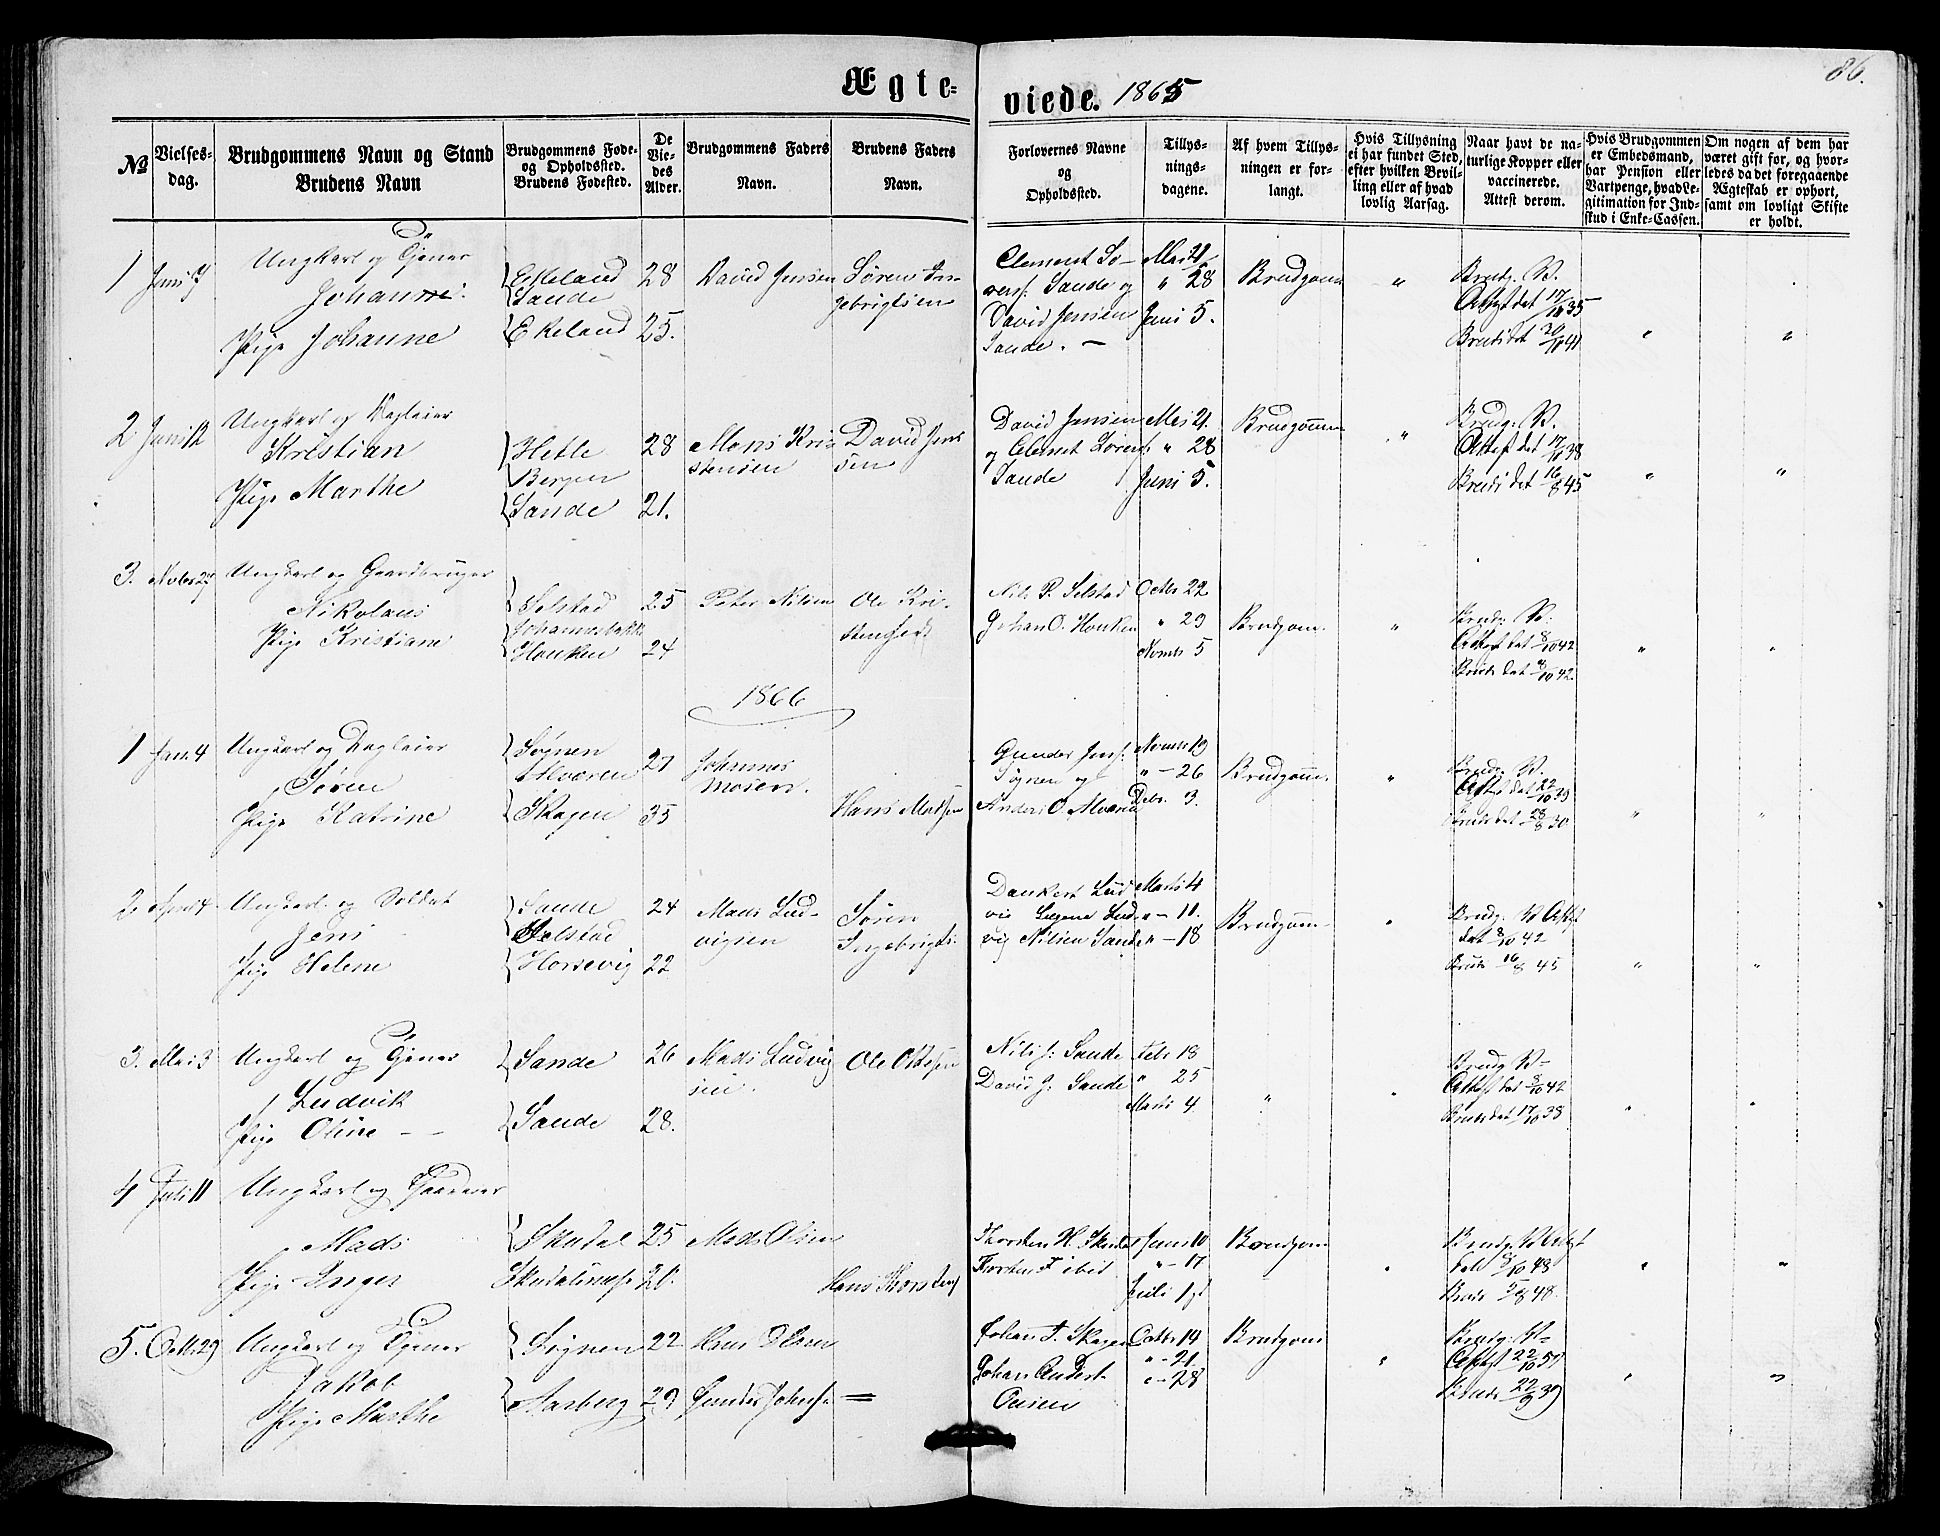 86.
Ægte-
viede. 1865
№
Vielses-
dag.
Brudgommens Navn og Stand
Brudens Navn
Brudgommens Føde-
og Opholdssted.
Brudens Fødested.
De
Vie-
des
Alder.
Brudgommens Faders
Navn.
Brudens Faders
Navn.
Forlovernes Navne
og
Opholdssted.
Tillys-
nings-
dagene.
Af hvem Tillys-
ningen er for-
langt.
Hvis Tillysning
ei har fundet Sted,
efter hvilken Bevil-
ling eller af hvad
lovlig Aarsag.
Naar havt de na-
turlige Kopper eller
vaccinerede.
Attest derom.
Hvis Brudgommen
er Embedsmand,
har Pension eller
Vartpenge, hvad Le-
gitimation for Ind-
skud i Enke-Cassen.
Om nogen af dem har
været gift for, og hvor-
ledes da det foregaaende
Ægteskab er ophørt,
samt om lovligt Skifte
er holdt.
1 Juni 7 Ungkarl og Tjener
Johannes
Pige Johanne
Ekeland 28
Sande
Ekeland 25.
David Jensen
Søren In-
gebrigtsen
Clement Sø-
rens. Sande og
David Jensen
Sande. -
Mai 21
" 28
Juni 5.
Brudgom
"
Brudg. V.
Attest dat 17/10 35
Bruds dat 20/10 41
" "
2 Juni 12 Ungkarl og Dagleier
Kristian
Pige Marthe
Hetle 28
Bergen
Sande 21.
Mons Kris
stensen
David Jens
sen
David Jensen
og Clemet Sørens.
Sande
Mai 21.
" 28
Juni 5.
Brudgommen
"
Brudg. V.
Attest dat 17/10 38
Bruds dat 16/8 45
" "
3. Novbr 27 Ungkarl og Gaardbruger
Nikolaus
Pige Kristiane
Selstad 25
Johannesbakke
Houken 24
Peter Nilsen
Ole Kri-
stensen
Nils P. Selstad
Johan O. Houken
Octbr 22
" 29
Novbr 5
Brudgom.
"
Brudg. V.
Attest dat 8/10 42
Bruds dat 8/10 42.
" "
1866
1 Jan. 4 Ungkarl og Dagleier
Søren
Pige Katrine
Søgnen 27
Alværen
Skagen 35
Johannes
Monsen.
Hans Madsen
Gunder Jens.
Søgnen og
Anders O. Alværen
Novbr 19
" - 26
Debr. 3.
Brudgom.
"
Brudg. V.
Attest dat 22/10 39
Bruds dat 28/8 30
" "
2. April 4 Ungkarl og Soldat
Jens
Pige Helene
Sande 24
Selstad
Horsevig 22
Mads Lud-
vigsen
Søren
Ingebrigts.
Dankert Lud
vig Nilsen Sande
Marts 4
" - 11.
" - 18
Brudgom
"
Brudg. V Attest
dat 8/10 42
Bruds 16/8 45
" "
3. Mai 3 Ungkarl og Tjener
Ludvik
Pige Oline - -
Sande 26
Sande 28.
Mads Ludvig
sen.
Ole Ottesen
Nils J. Sande
David J. Sande
Feb 18
" 25
Marts 4
"
"
Brudg V-
Attest dat 8/10 42
Bruds dat 17/10 38
" "
4 Juli 11 Ungkarl og Gaardeier
Mads
Pige Inger
Skudal 25
20.
Mads Olsen
Hans Thorstens
Thorsten H. Skudal
Thorsten T. ibid
Juni 10
" - 17
Juli 1st
Brudgom
"
Brudg. V Attest
dat 5/10 48
Bruds 5/8 48.
" "
5. Octbr 29 Ungkarl og Tjener
Jakob
Pige Marthe
Søgnen 22
Aarberg 29
Hans Olsen
Gunder Johans. =
Johan T. Skagen
Johan Anders
Octbr 14
" - 21
" - 28
Brudgom
"
Brudg. V-
Attest 22/10 57
Bruds 22/9 39
" "